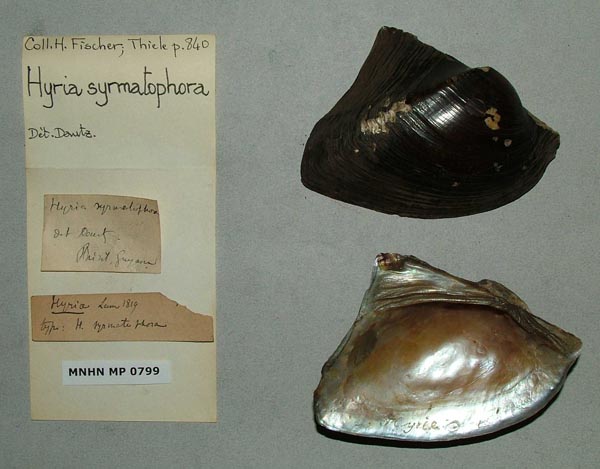 Coll. H. Fischer; Thiele p. 840
Hyria syrmatophora
Dét. Dautz.
Hyria syrmatophora
det Dautz.
Guyane
Hyria Lam 1819
type: H. syrmatophora
MNHN MP 0799
Hyria